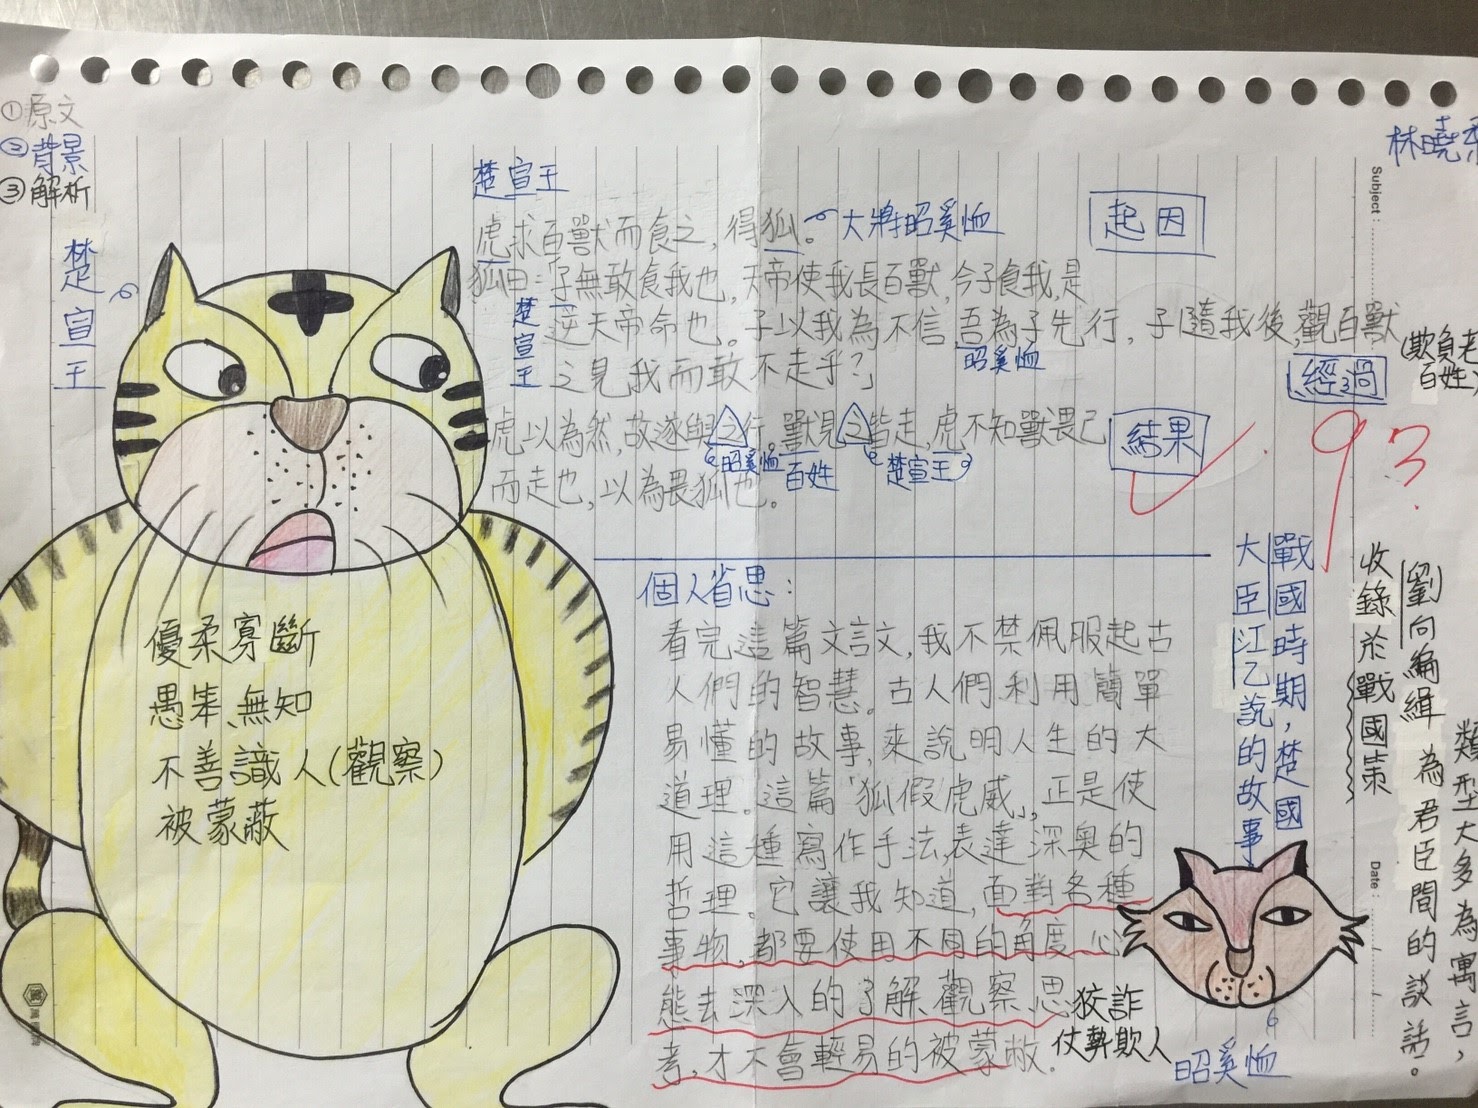 ①原文
②背景
③解析
楚宣王
楚宣王
虎求百獸而食之，得狐。大將昭奚恤
起因
狐曰：「子無敢食我也，天帝使我長百獸，今子食我，是
逆天帝命也。子以我為不信，吾為子先行，子隨我後，觀百獸
楚宣王
昭奚恤
之見我而敢不走乎？」
經過
(欺負老
百姓)
虎以為然，故遂與之行。獸見之皆走，虎不知獸畏己
昭奚恤
百姓
楚宣王
結果
而走也，以為畏狐也。
93
優柔寡斷
愚笨、無知
不善識人(觀察)
被蒙蔽
個人省思：
看完這篇文言文，我不禁佩服起古
人們的智慧。古人們利用簡單
易懂的故事，來說明人生的大
道理。這篇「狐假虎威」，正是使
用這種寫作手法，表達深奧的
哲理。它讓我知道，面對各種
事物，都要使用不同的角度、心
態去深入的了解、觀察、思
考，才不會輕易的被蒙蔽。
狡詐
仗勢欺人
昭奚恤
戰國時期，楚國
大臣江乙說的故事
劉向編緝
收錄於戰國策
類型大多為寓言，
為君臣間的談話。
林曉
Subject:
Date: